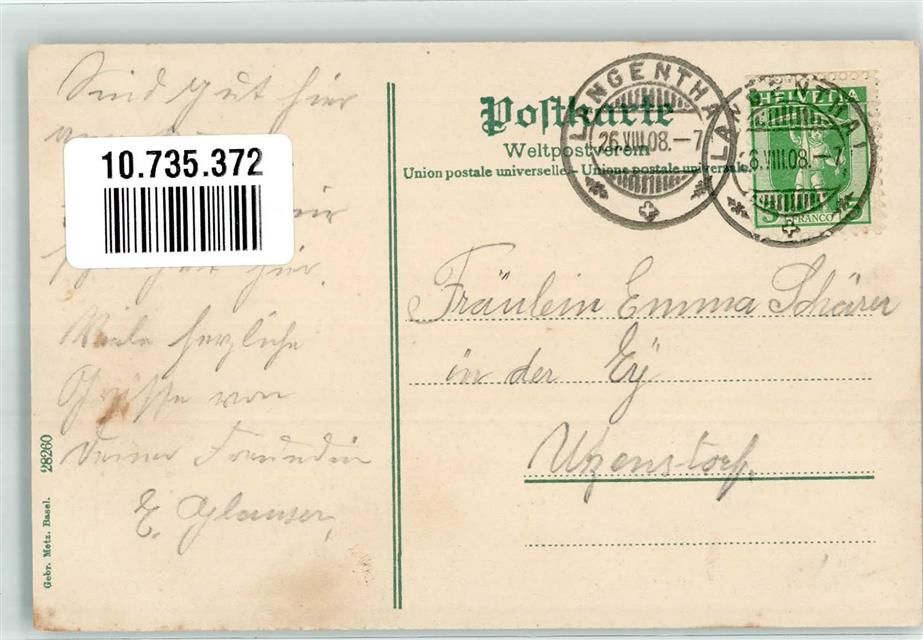 Sind gut hier
10.735.372
hier.
Viele herzliche
Grüsse von
Deiner Freundin
E. Glauser,
28260
Gebr. Metz. Basel.
Postkarte
Weltpostverein
Union postale universelle – Unione postale universale
LANGENTHAL
26.VIII.08.–7
LANGENTHAL
26.VIII.08.–7
HELVETIA
5 FRANCO 5
Fräulein Emma Schärer
in der Ey
Utzenstorf.